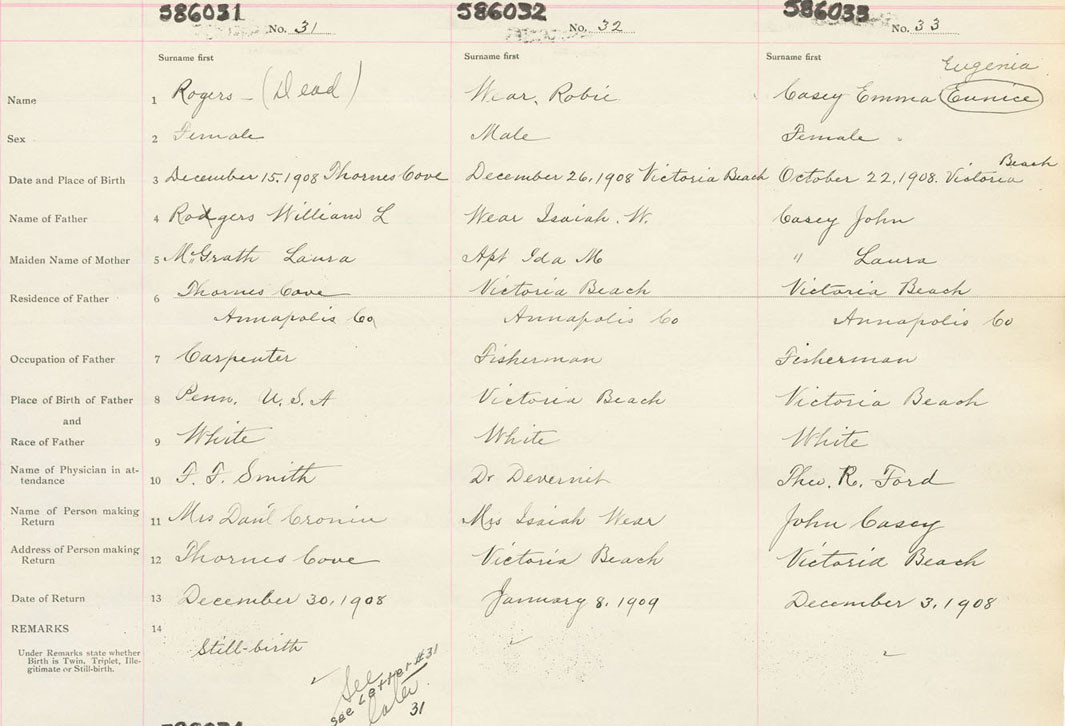 586031 586032 586033
No. 31 No. 32 No. 33
Surname first Surname first Surname first Eugenia
Name 1 Rogers - (Dead) Wear, Robie Casey Emma Eunice
Sex 2 Female Male Female
Beach
Date and Place of Birth 3 December 15, 1908 Thornes Cove December 26, 1908 Victoria Beach October 22, 1908. Victoria
Name of Father 4 Rodgers William L Wear Isaiah. W. Casey John
Maiden Name of Mother 5 McGrath Laura Apt Ida M " Laura
Residence of Father 6 Thornes Cove Victoria Beach Victoria Beach
Annapolis Co Annapolis Co Annapolis Co
Occupation of Father 7 Carpenter Fisherman Fisherman
Place of Birth of Father 8 Penn. U.S.A Victoria Beach Victoria Beach
and
Race of Father 9 White White White
Name of Physician in at-
tendance 10 F. F. Smith Dr Devernit Theo. R. Ford
Name of Person making
Return 11 Mrs Danl Cronin Mrs Isaiah Wear John Casey
Address of Person making
Return 12 Thornes Cove Victoria Beach Victoria Beach
Date of Return 13 December 30, 1908 January 8, 1909 December 3, 1908
REMARKS 14
Still-birth
Under Remarks state whether
Birth is Twin, Triplet, Ille-
gitimate or Still-birth.
See
see Letter #31
later
31
586034